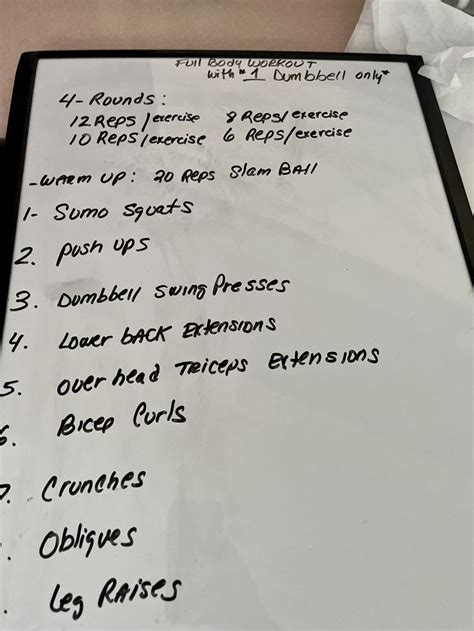 Full Body Workout
with *1 Dumbbell only*
4-Rounds:
12 Reps/exercise 8 Reps/exercise
10 Reps/exercise 6 Reps/exercise
-Warm up: 20 Reps Slam Ball
1- Sumo Squats
2. Push ups
3. Dumbbell Swing Presses
4. Lower back Extensions
5. Over head Triceps Extensions
6. Bicep Curls
7. Crunches
. Obliques
. Leg Raises